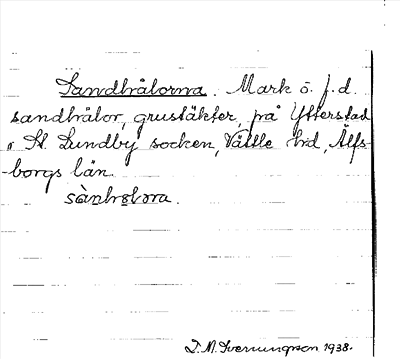 Sandhålorna. Mark ö. f. d.
sandhålor, grustäkter, på Ytterstad
i St. Lundby socken, Vättle hd, Älfs-
-borgs län.
D. M. Sverrungsson 1938.